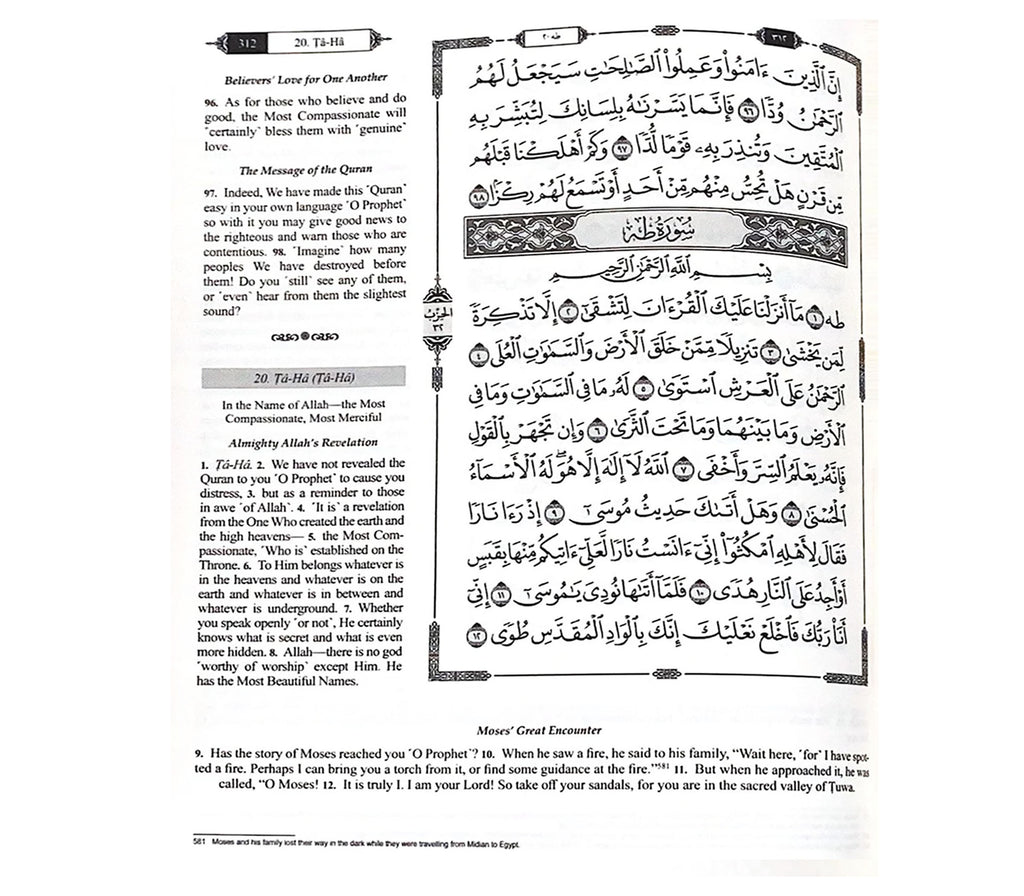 312
20. Ṭâ-Hâ
Believers' Love for One Another
96. As for those who believe and do
good, the Most Compassionate will
˹certainly˺ bless them with ˹genuine˺
love.
The Message of the Quran
97. Indeed, We have made this ˹Quran˺
easy in your own language ˹O Prophet˺
so with it you may give good news to
the righteous and warn those who are
contentious. 98. ˹Imagine˺ how many
peoples We have destroyed before
them! Do you ˹still˺ see any of them,
or ˹even˺ hear from them the slightest
sound?
20. Ṭâ-Hâ (Ṭâ-Hâ)
In the Name of Allah—the Most
Compassionate, Most Merciful
Almighty Allah's Revelation
1. Ṭâ-Hâ. 2. We have not revealed the
Quran to you ˹O Prophet˺ to cause you
distress, 3. but as a reminder to those
in awe ˹of Allah˺. 4. ˹It is˺ a revelation
from the One Who created the earth and
the high heavens— 5. the Most Com-
passionate, ˹Who is˺ established on the
Throne. 6. To Him belongs whatever is
in the heavens and whatever is on the
earth and whatever is in between and
whatever is underground. 7. Whether
you speak openly ˹or not˺, He certainly
knows what is secret and what is even
more hidden. 8. Allah—there is no god
˹worthy of worship˺ except Him. He
has the Most Beautiful Names.
طه ٢٠
٣١٢
إِنَّ ٱلَّذِينَ ءَامَنُوا۟ وَعَمِلُوا۟ ٱلصَّـٰلِحَـٰتِ سَيَجْعَلُ لَهُمُ
ٱلرَّحْمَـٰنُ وُدًّا ٩٦ فَإِنَّمَا يَسَّرْنَـٰهُ بِلِسَانِكَ لِتُبَشِّرَ بِهِ
ٱلْمُتَّقِينَ وَتُنذِرَ بِهِۦ قَوْمًا لُّدًّا ٩٧ وَكَمْ أَهْلَكْنَا قَبْلَهُم
مِّن قَرْنٍ هَلْ تُحِسُّ مِنْهُم مِّنْ أَحَدٍ أَوْ تَسْمَعُ لَهُمْ رِكْزًۢا ٩٨
سُورَةُ طه
بِسْمِ ٱللَّهِ ٱلرَّحْمَـٰنِ ٱلرَّحِيمِ
طه ١ مَآ أَنزَلْنَا عَلَيْكَ ٱلْقُرْءَانَ لِتَشْقَىٰٓ ٢ إِلَّا تَذْكِرَةً
لِّمَن يَخْشَىٰ ٣ تَنزِيلًا مِّمَّنْ خَلَقَ ٱلْأَرْضَ وَٱلسَّمَـٰوَٰتِ ٱلْعُلَى ٤
ٱلرَّحْمَـٰنُ عَلَى ٱلْعَرْشِ ٱسْتَوَىٰ ٥ لَهُۥ مَا فِى ٱلسَّمَـٰوَٰتِ وَمَا فِى
ٱلْأَرْضِ وَمَا بَيْنَهُمَا وَمَا تَحْتَ ٱلثَّرَىٰ ٦ وَإِن تَجْهَرْ بِٱلْقَوْلِ
فَإِنَّهُۥ يَعْلَمُ ٱلسِّرَّ وَأَخْفَى ٧ ٱللَّهُ لَآ إِلَـٰهَ إِلَّا هُوَ ۖ لَهُ ٱلْأَسْمَآءُ
ٱلْحُسْنَىٰ ٨ وَهَلْ أَتَىٰكَ حَدِيثُ مُوسَىٰٓ ٩ إِذْ رَءَا نَارًا
فَقَالَ لِأَهْلِهِ ٱمْكُثُوٓا۟ إِنِّىٓ ءَانَسْتُ نَارًا لَّعَلِّىٓ ءَاتِيكُم مِّنْهَا بِقَبَسٍ
أَوْ أَجِدُ عَلَى ٱلنَّارِ هُدًى ١٠ فَلَمَّآ أَتَىٰهَا نُودِىَ يَـٰمُوسَىٰٓ ١١ إِنِّىٓ
أَنَا۠ رَبُّكَ فَٱخْلَعْ نَعْلَيْكَ ۖ إِنَّكَ بِٱلْوَادِ ٱلْمُقَدَّسِ طُوًى ١٢
الحزب
٣٢
Moses' Great Encounter
9. Has the story of Moses reached you ˹O Prophet˺? 10. When he saw a fire, he said to his family, “Wait here, ˹for˺ I have spot-
ted a fire. Perhaps I can bring you a torch from it, or find some guidance at the fire.”581 11. But when he approached it, he was
called, “O Moses! 12. It is truly I. I am your Lord! So take off your sandals, for you are in the sacred valley of Ṭuwa.
581 Moses and his family lost their way in the dark while they were travelling from Midian to Egypt.